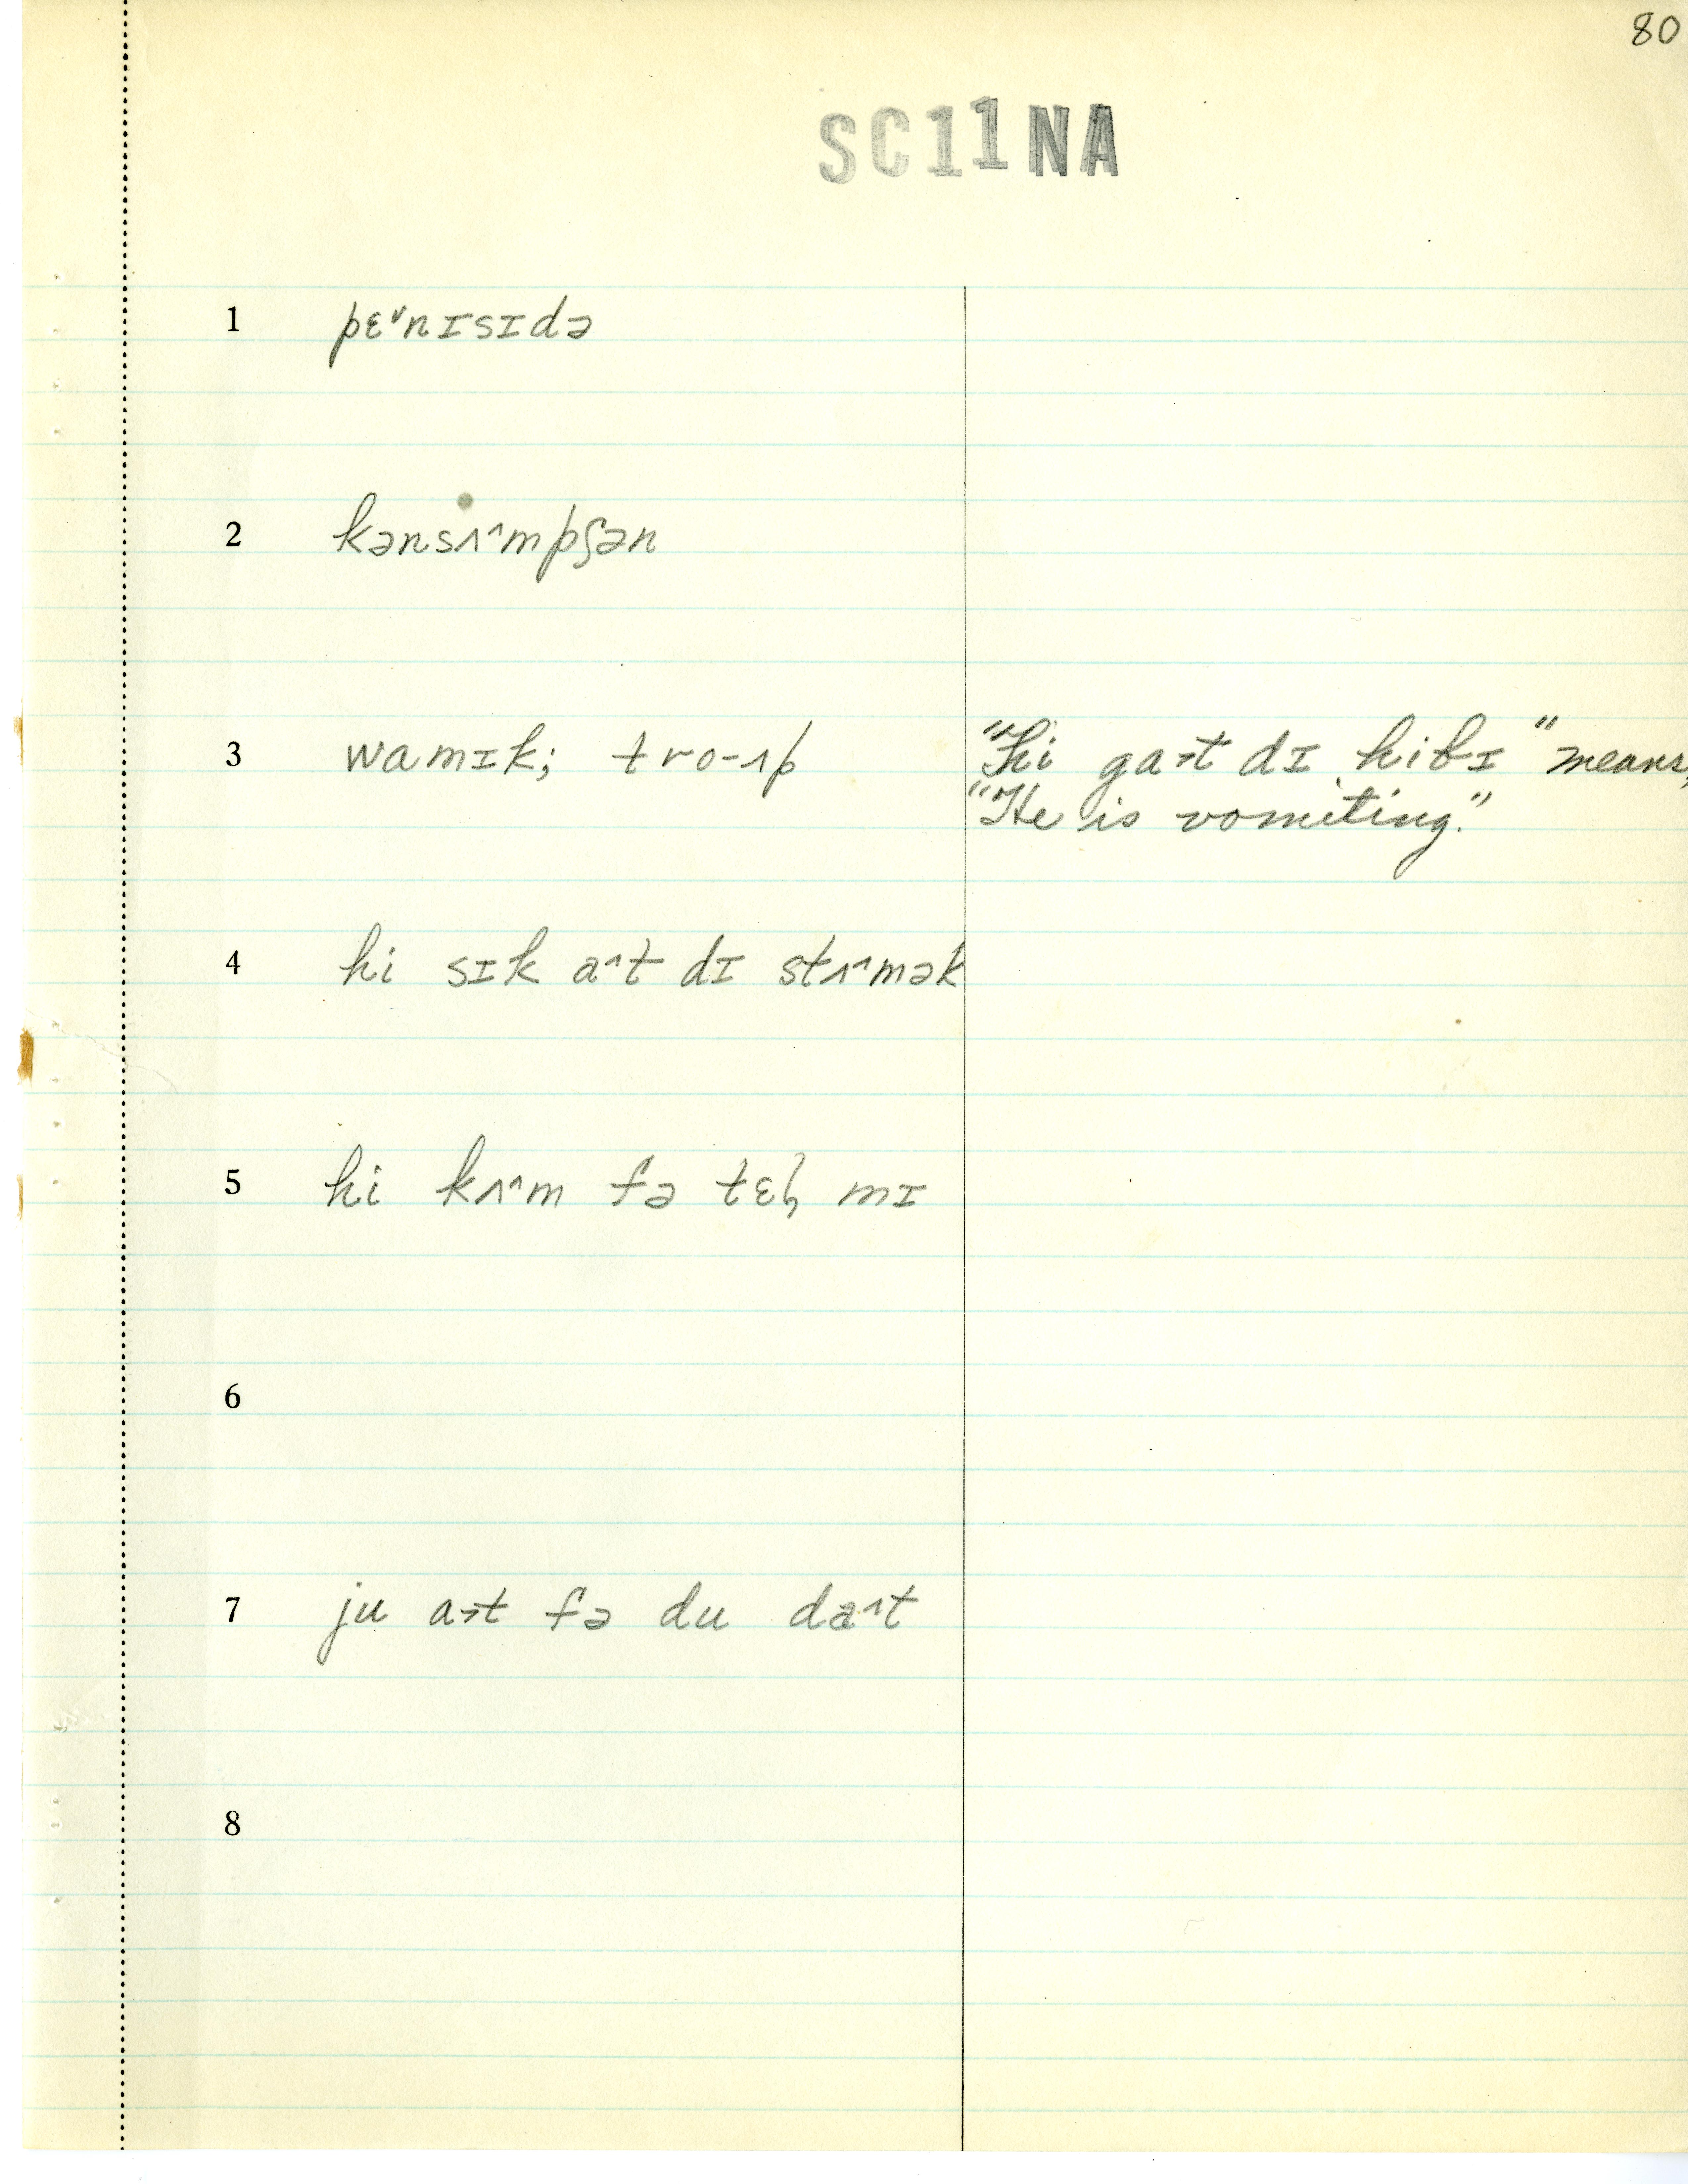 80
SC11NA
1 pɛ˅nɪsɪdə
2 kənsʌ˄mpʃən
3 wamɪk; tro-ʌp "hi ga˃t dɪ hibɪ" means,
"He is vomiting."
4 hi sɪk a˄t dɪ stʌ˄mək
5 hi kʌ˄m fə tɛɫ mɪ
6
7 ju a˃t fə du da˄t
8